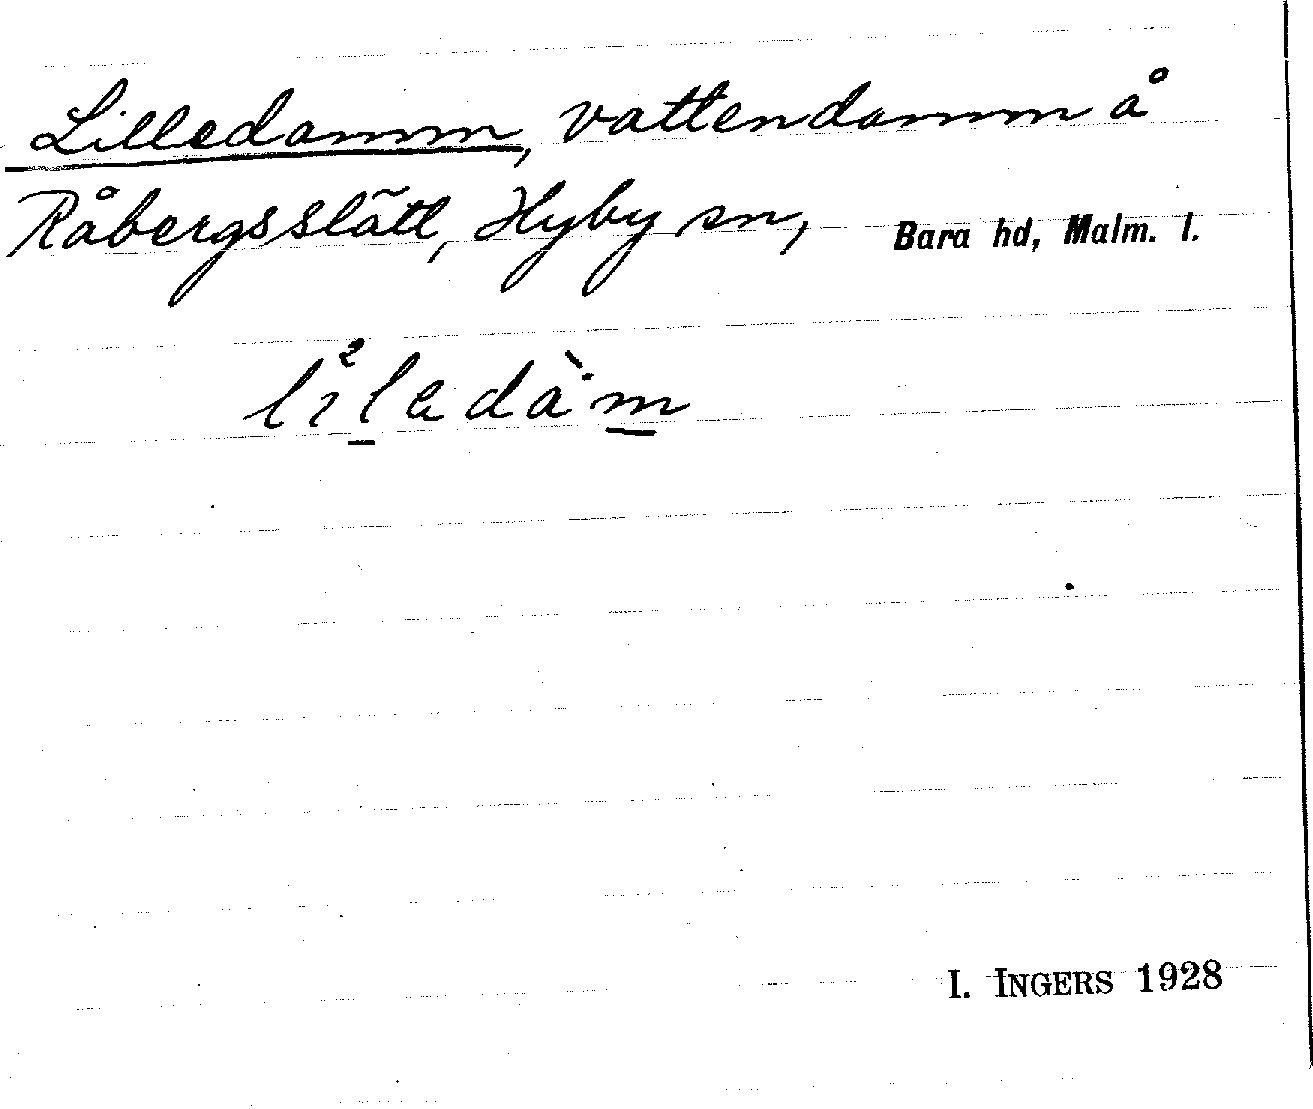 Lilledamm, vattendamm å
Råbergsslätt, Hyby sn, Bara hd, Malm. l.
I. INGERS 1928